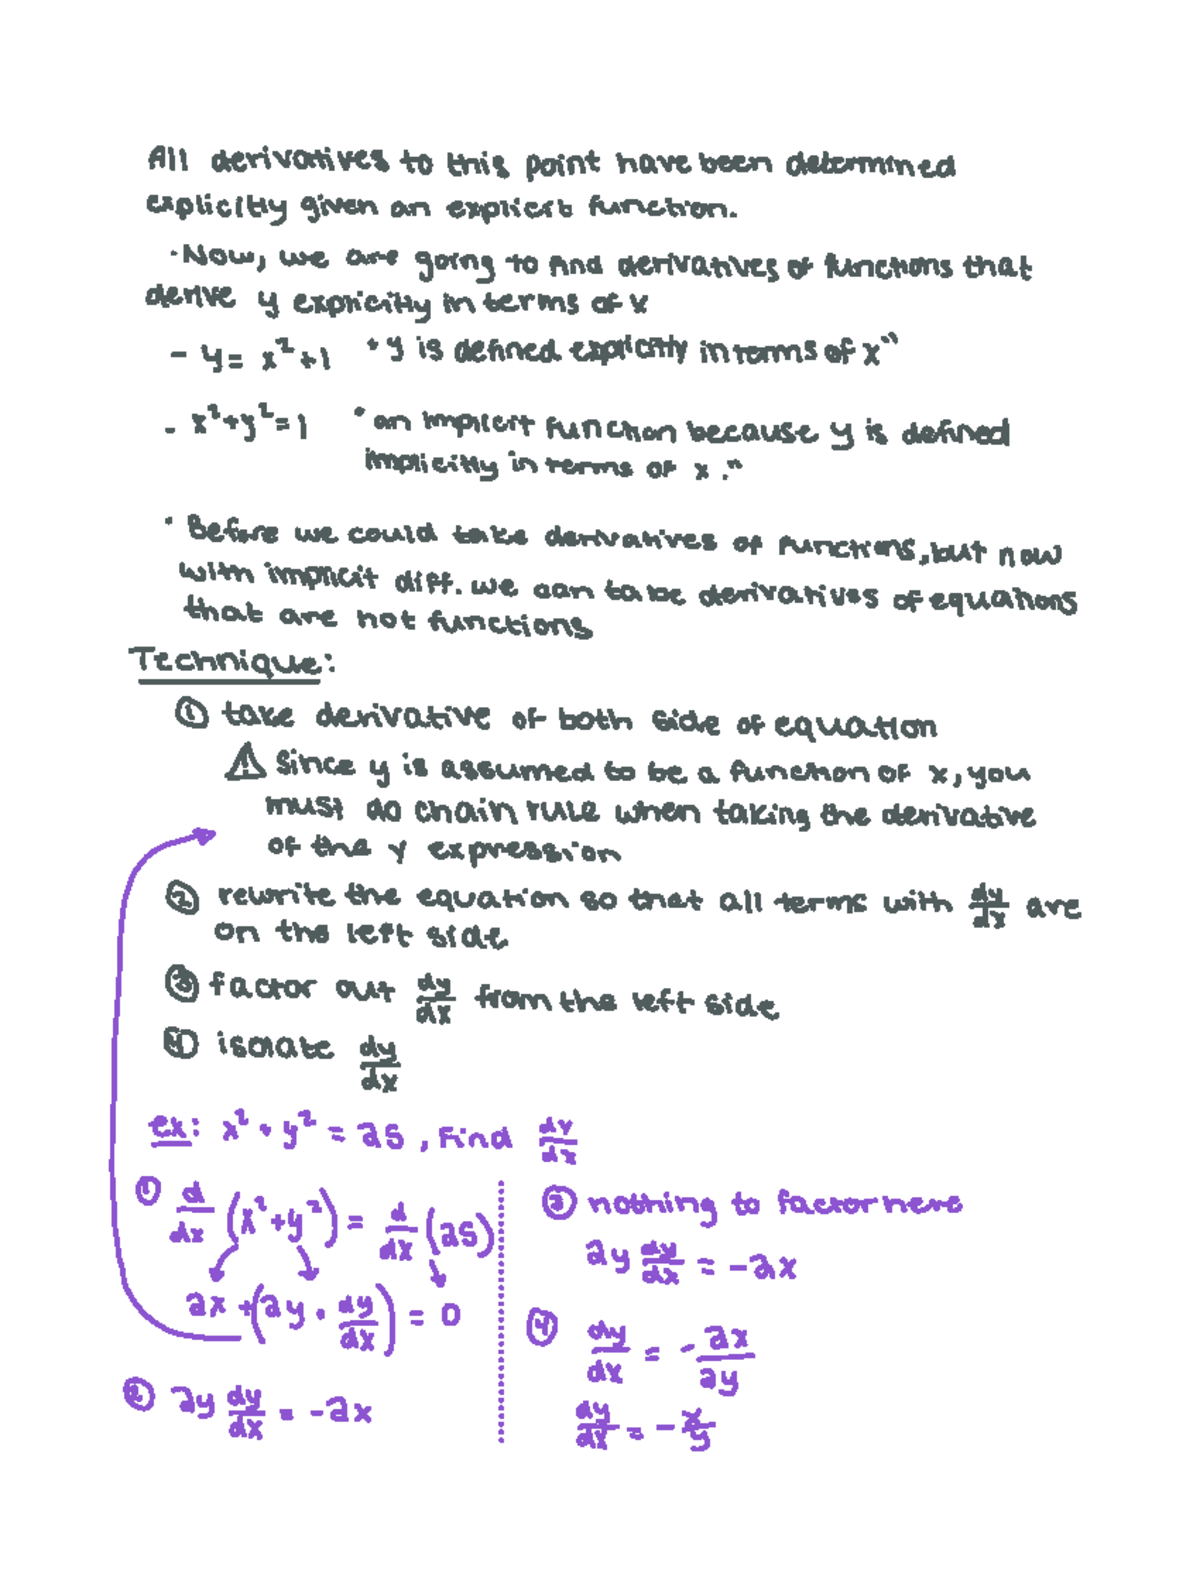 All derivatives to this point have been determined
explicitly given an explicit function.
· Now, we are going to find derivatives of functions that
derive y explicitly in terms of x
- y = x²+1 "y is defined explicitly in terms of x"
- x²+y²=1 "an implicit function because y is defined
implicitly in terms of x."
· Before we could take derivatives of functions, but now
with implicit diff. we can take derivatives of equations
that are not functions
Technique:
① take derivative of both side of equation
⚠ Since y is assumed to be a function of x, you
must do chain rule when taking the derivative
of the y expression
② rewrite the equation so that all terms with dy/dx are
on the left side
③ factor out dy/dx from the left side
④ isolate dy/dx
ex: x² + y² = 25, Find dy/dx
① d/dx (x²+y²) = d/dx (25)
2x + (2y · dy/dx) = 0
② 2y dy/dx = -2x
③ nothing to factor here
2y dy/dx = -2x
④ dy/dx = - 2x/2y
dy/dx = - x/y